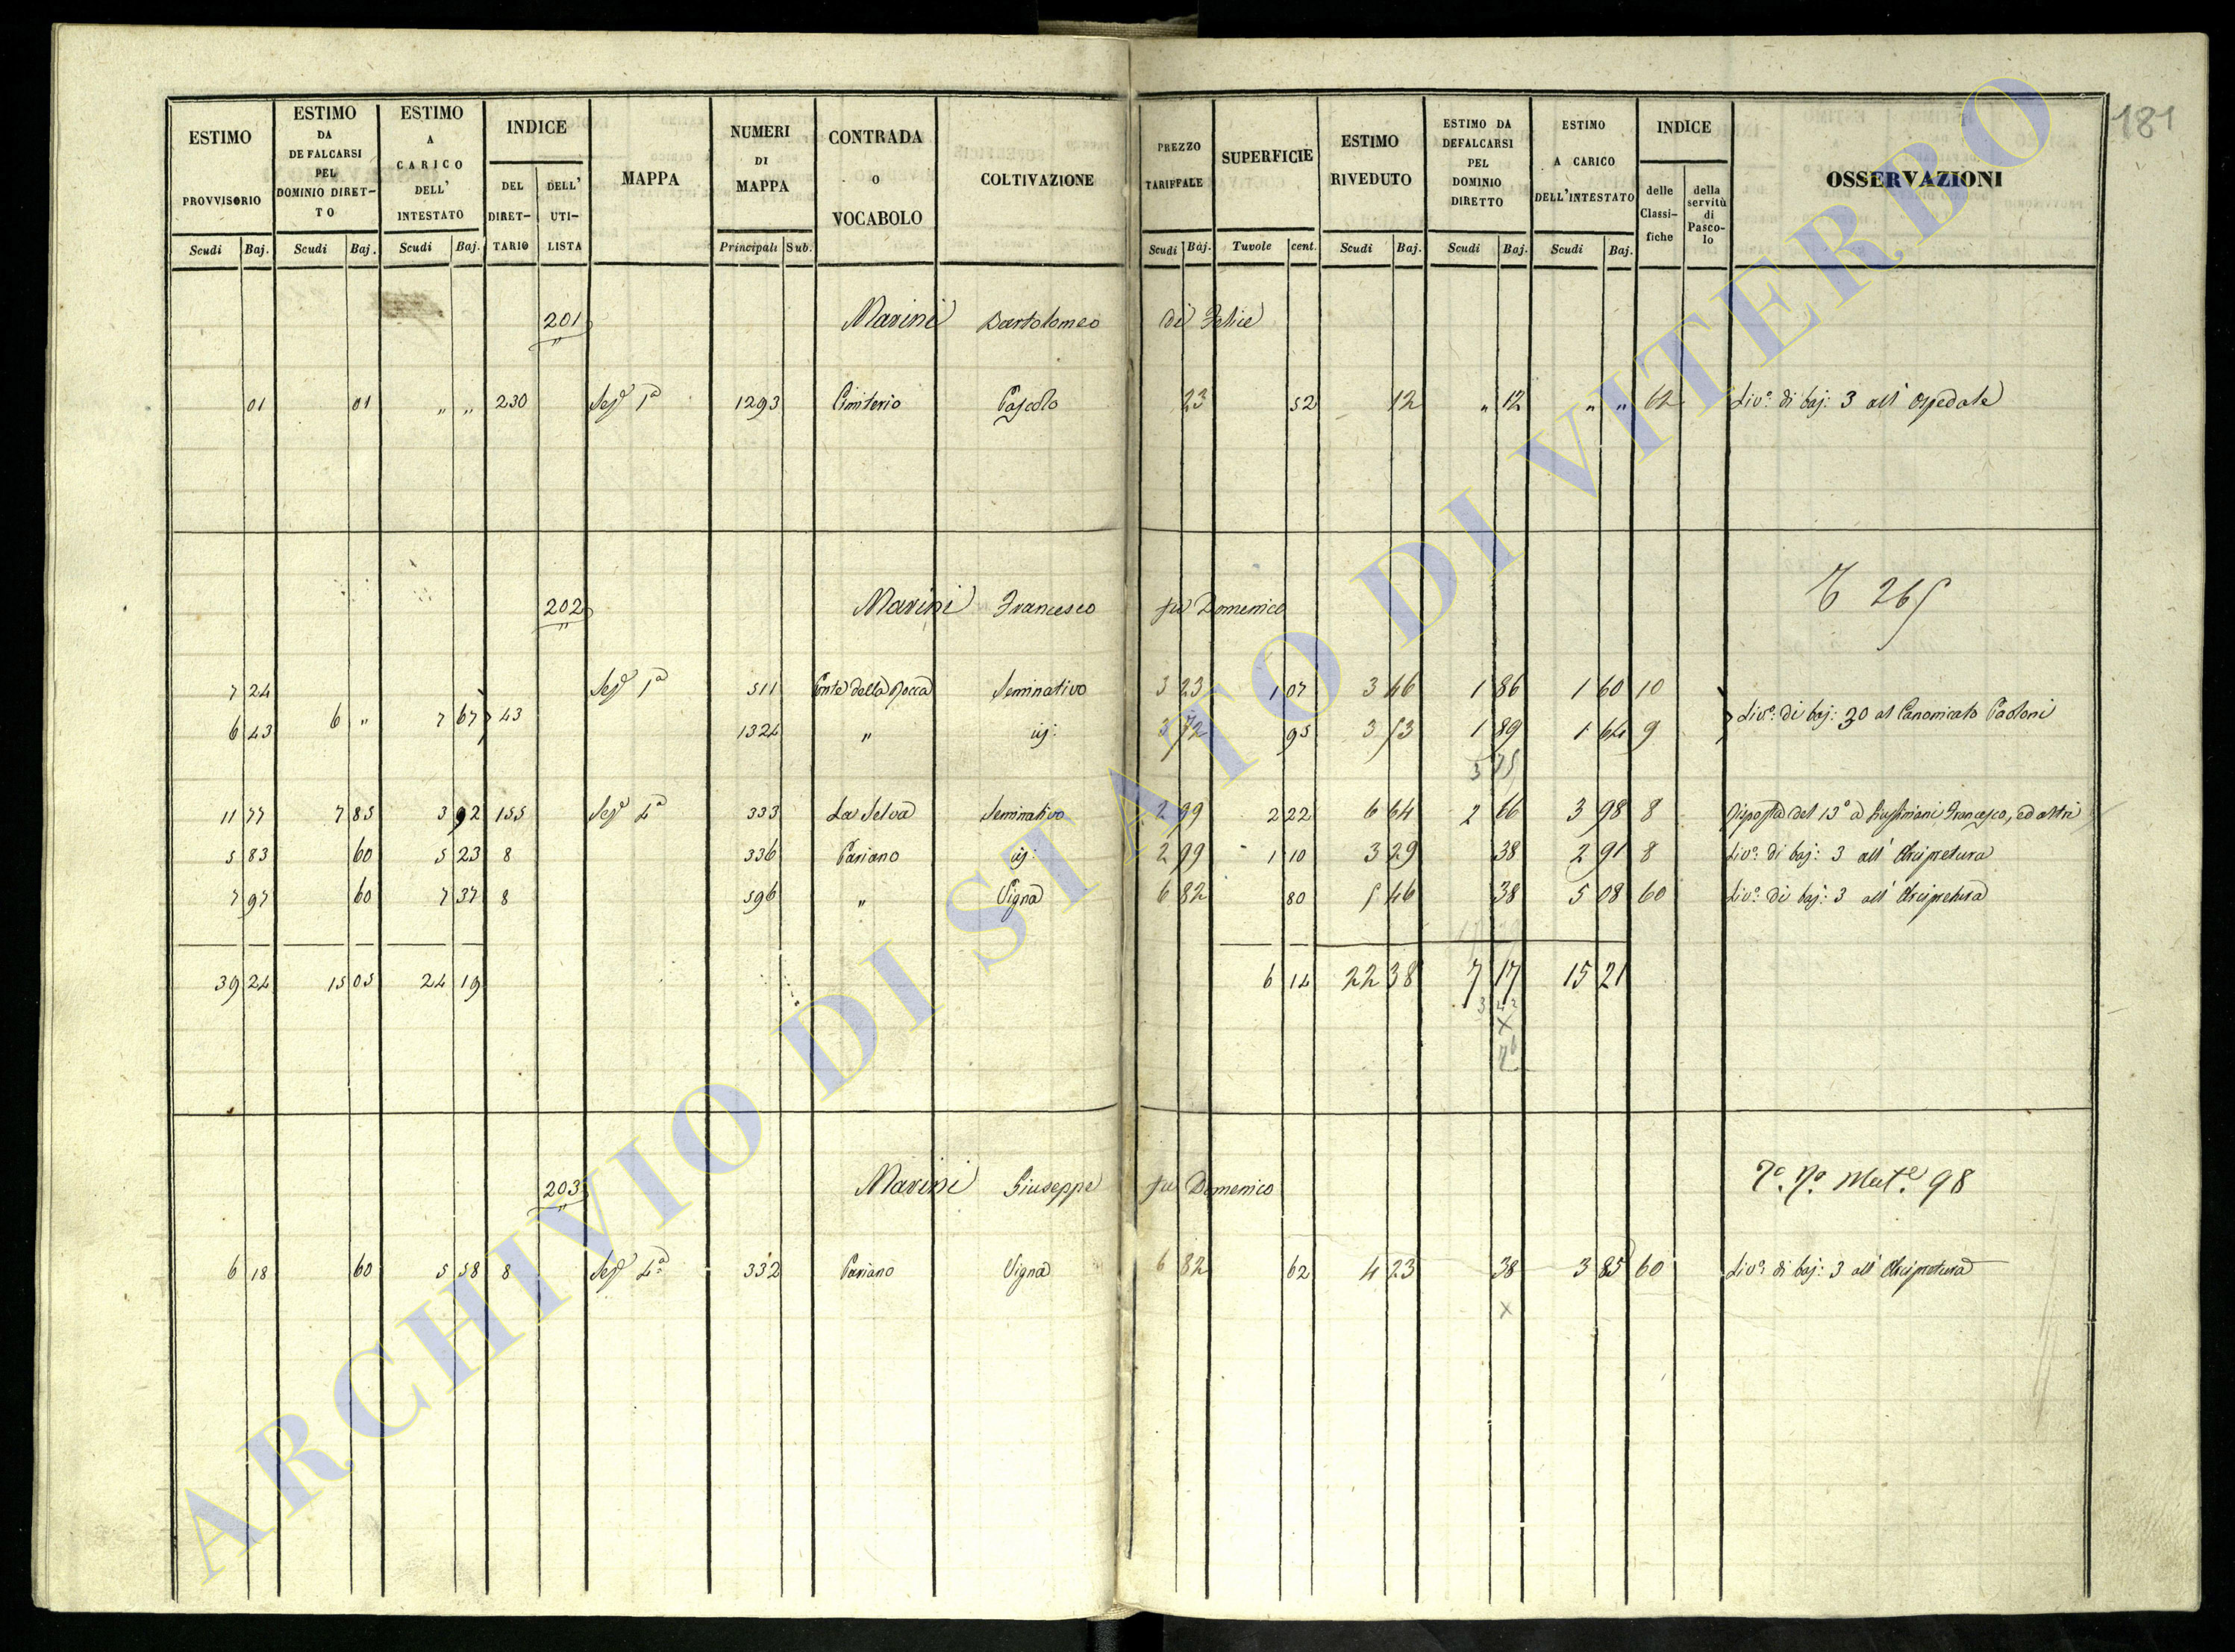 181
ESTIMO PROVVISORIO Scudi Baj.
ESTIMO DA DEFALCARSI PEL DOMINIO DIRET-TO Scudi Baj.
ESTIMO A CARICO DELL' INTESTATO Scudi Baj.
INDICE DEL DIRET-TARIO DELL' UTI-LISTA
MAPPA
NUMERI DI MAPPA Principali Sub.
CONTRADA O VOCABOLO
COLTIVAZIONE
PREZZO TARIFFALE Scudi Baj.
SUPERFICIE Tavole cent.
ESTIMO RIVEDUTO Scudi Baj.
ESTIMO DA DEFALCARSI PEL DOMINIO DIRETTO Scudi Baj.
ESTIMO A CARICO DELL'INTESTATO Scudi Baj.
INDICE delle Classi-fiche della servitù di Pasco-lo
OSSERVAZIONI
201 Marini Bartolomeo di Felice
01 01 " " 230 Sez.e 1a 1293 Cimiterio Pascolo 23 52 12 " 12 " " 62 Liv.o di baj: 3 all' Ospedale
202 Marini Francesco fu Domenico 265
7 24 Sez.e 1a 511 Fonte della Rocca Seminativo 3 23 1 07 3 46 1 86 1 60 10
6 " 7 67 43 Liv.o di baj: 30 al Canonicato Paoloni
6 43 1324 " id: 3 72 95 3 53 1 89 1 64 9
3 75
11 77 7 85 3 92 155 Sez.e 4a 333 La Selva Seminativo 2 99 2 22 6 64 2 66 3 98 8 Risposta del 13o a Giustiniani Francesco, ed altri
5 83 60 5 23 8 336 Pariano id: 2 99 1 10 3 29 38 2 91 8 Liv.o di baj: 3 all' Arcipretura
7 97 60 7 37 8 596 " Vigna 6 82 80 5 46 38 5 08 60 Liv.o di baj: 3 all' Arcipretura
39 24 15 05 24 19 6 14 22 38 7 17 15 21
x
203 Marini Giuseppe fu Domenico 98
6 18 60 5 58 8 Sez.e 4a 332 Pariano Vigna 6 82 62 4 23 38 3 85 60 Liv.o di baj: 3 all' Arcipretura
x
ARCHIVIO DI STATO DI VITERBO